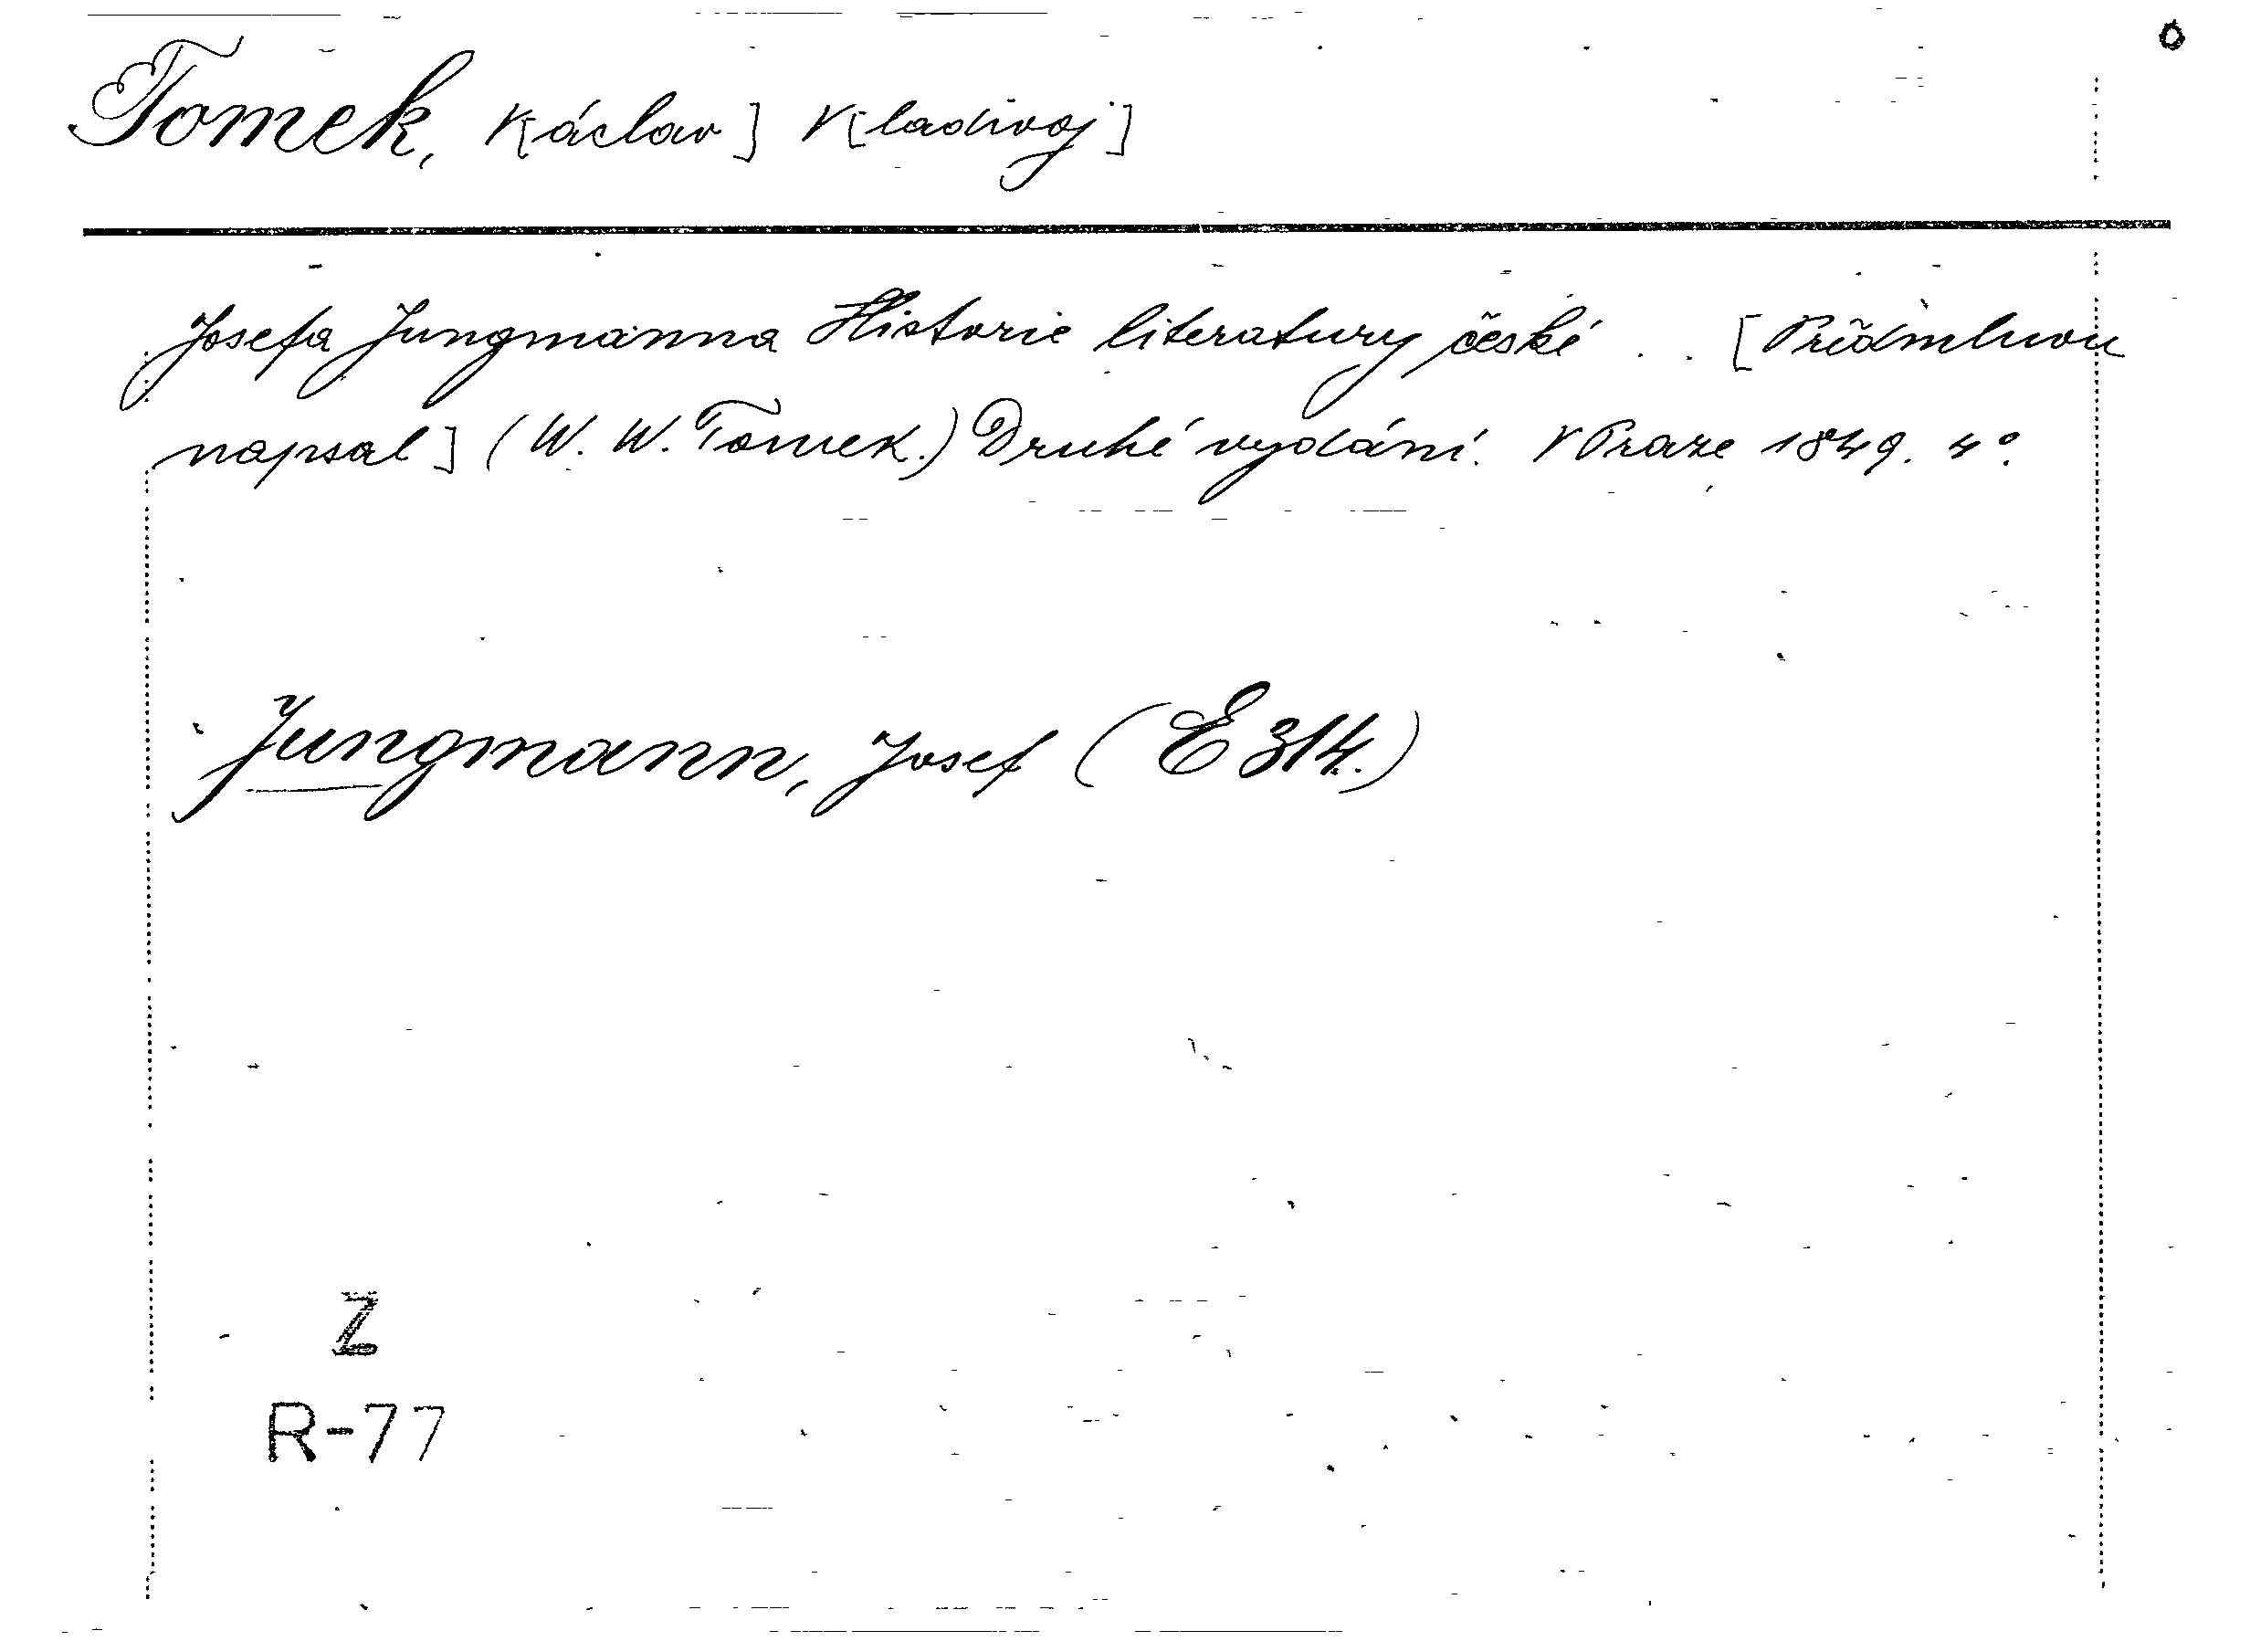 Tomek, V[áclav] V[ladivoj]
Josefa Jungmanna Historie literatury české . . [Předmluvu
napsal] (W. W. Tomek.) Druhé vydání. V Praze 1849. 4°.
Jungmann, Josef (E 314.)
Z
R-77